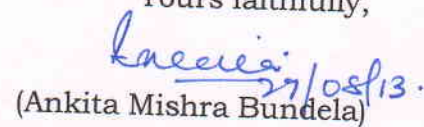 Yours faithfully,
27/08/13.
(Ankita Mishra Bundela)